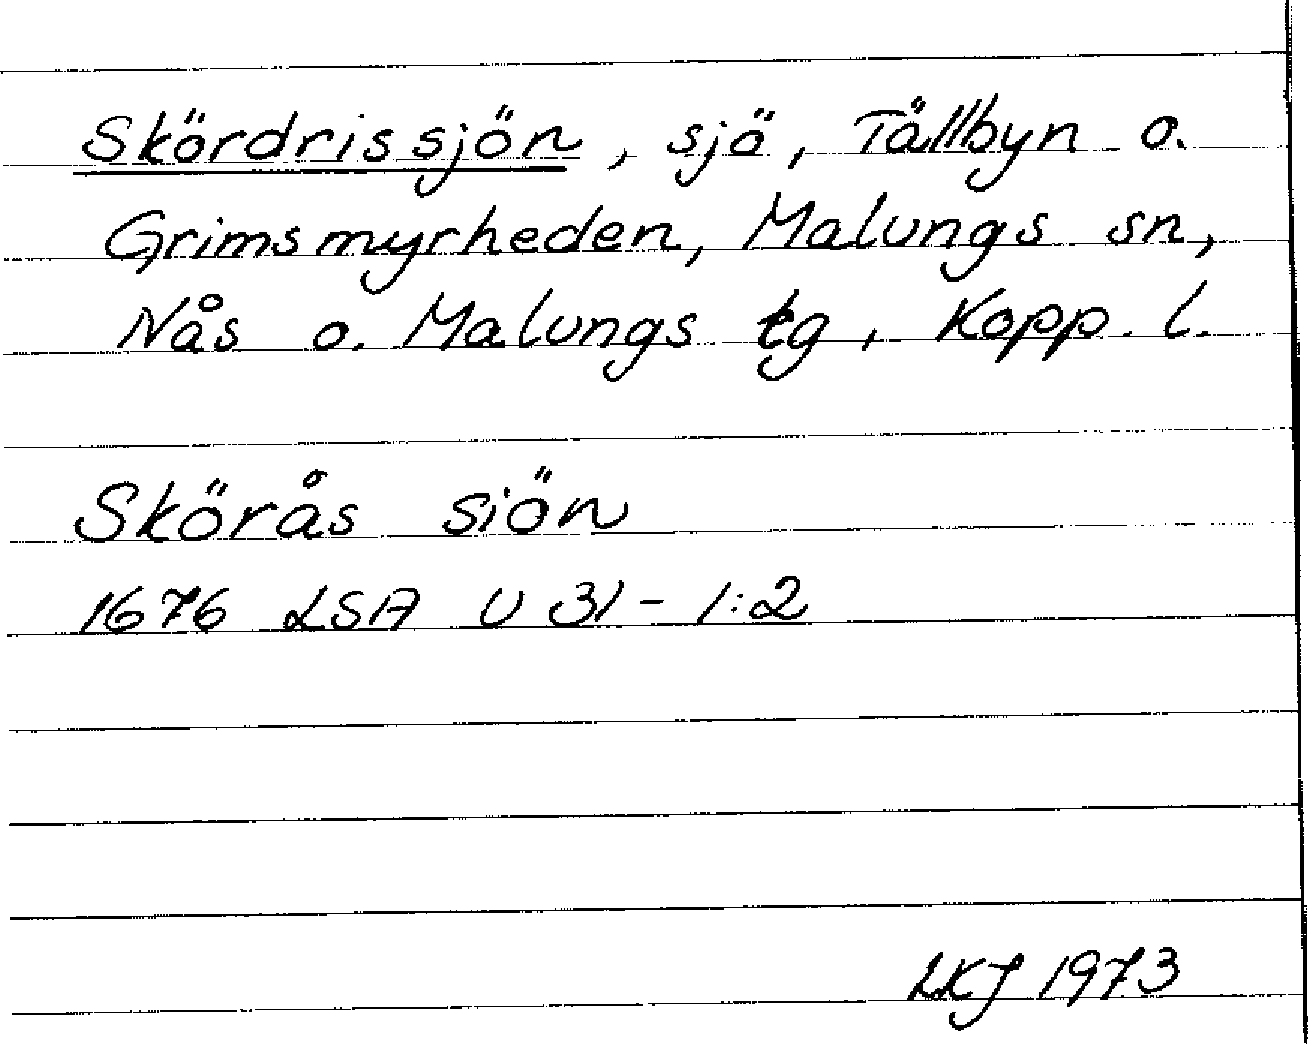 Skördrissjön, sjö, Tällbyn o.
Grimsmyrheden, Malungs sn,
Nås o. Malungs tg, Kopp. l.
Skörås siön
1676 LSA U 31-1:2
LKJ 1973